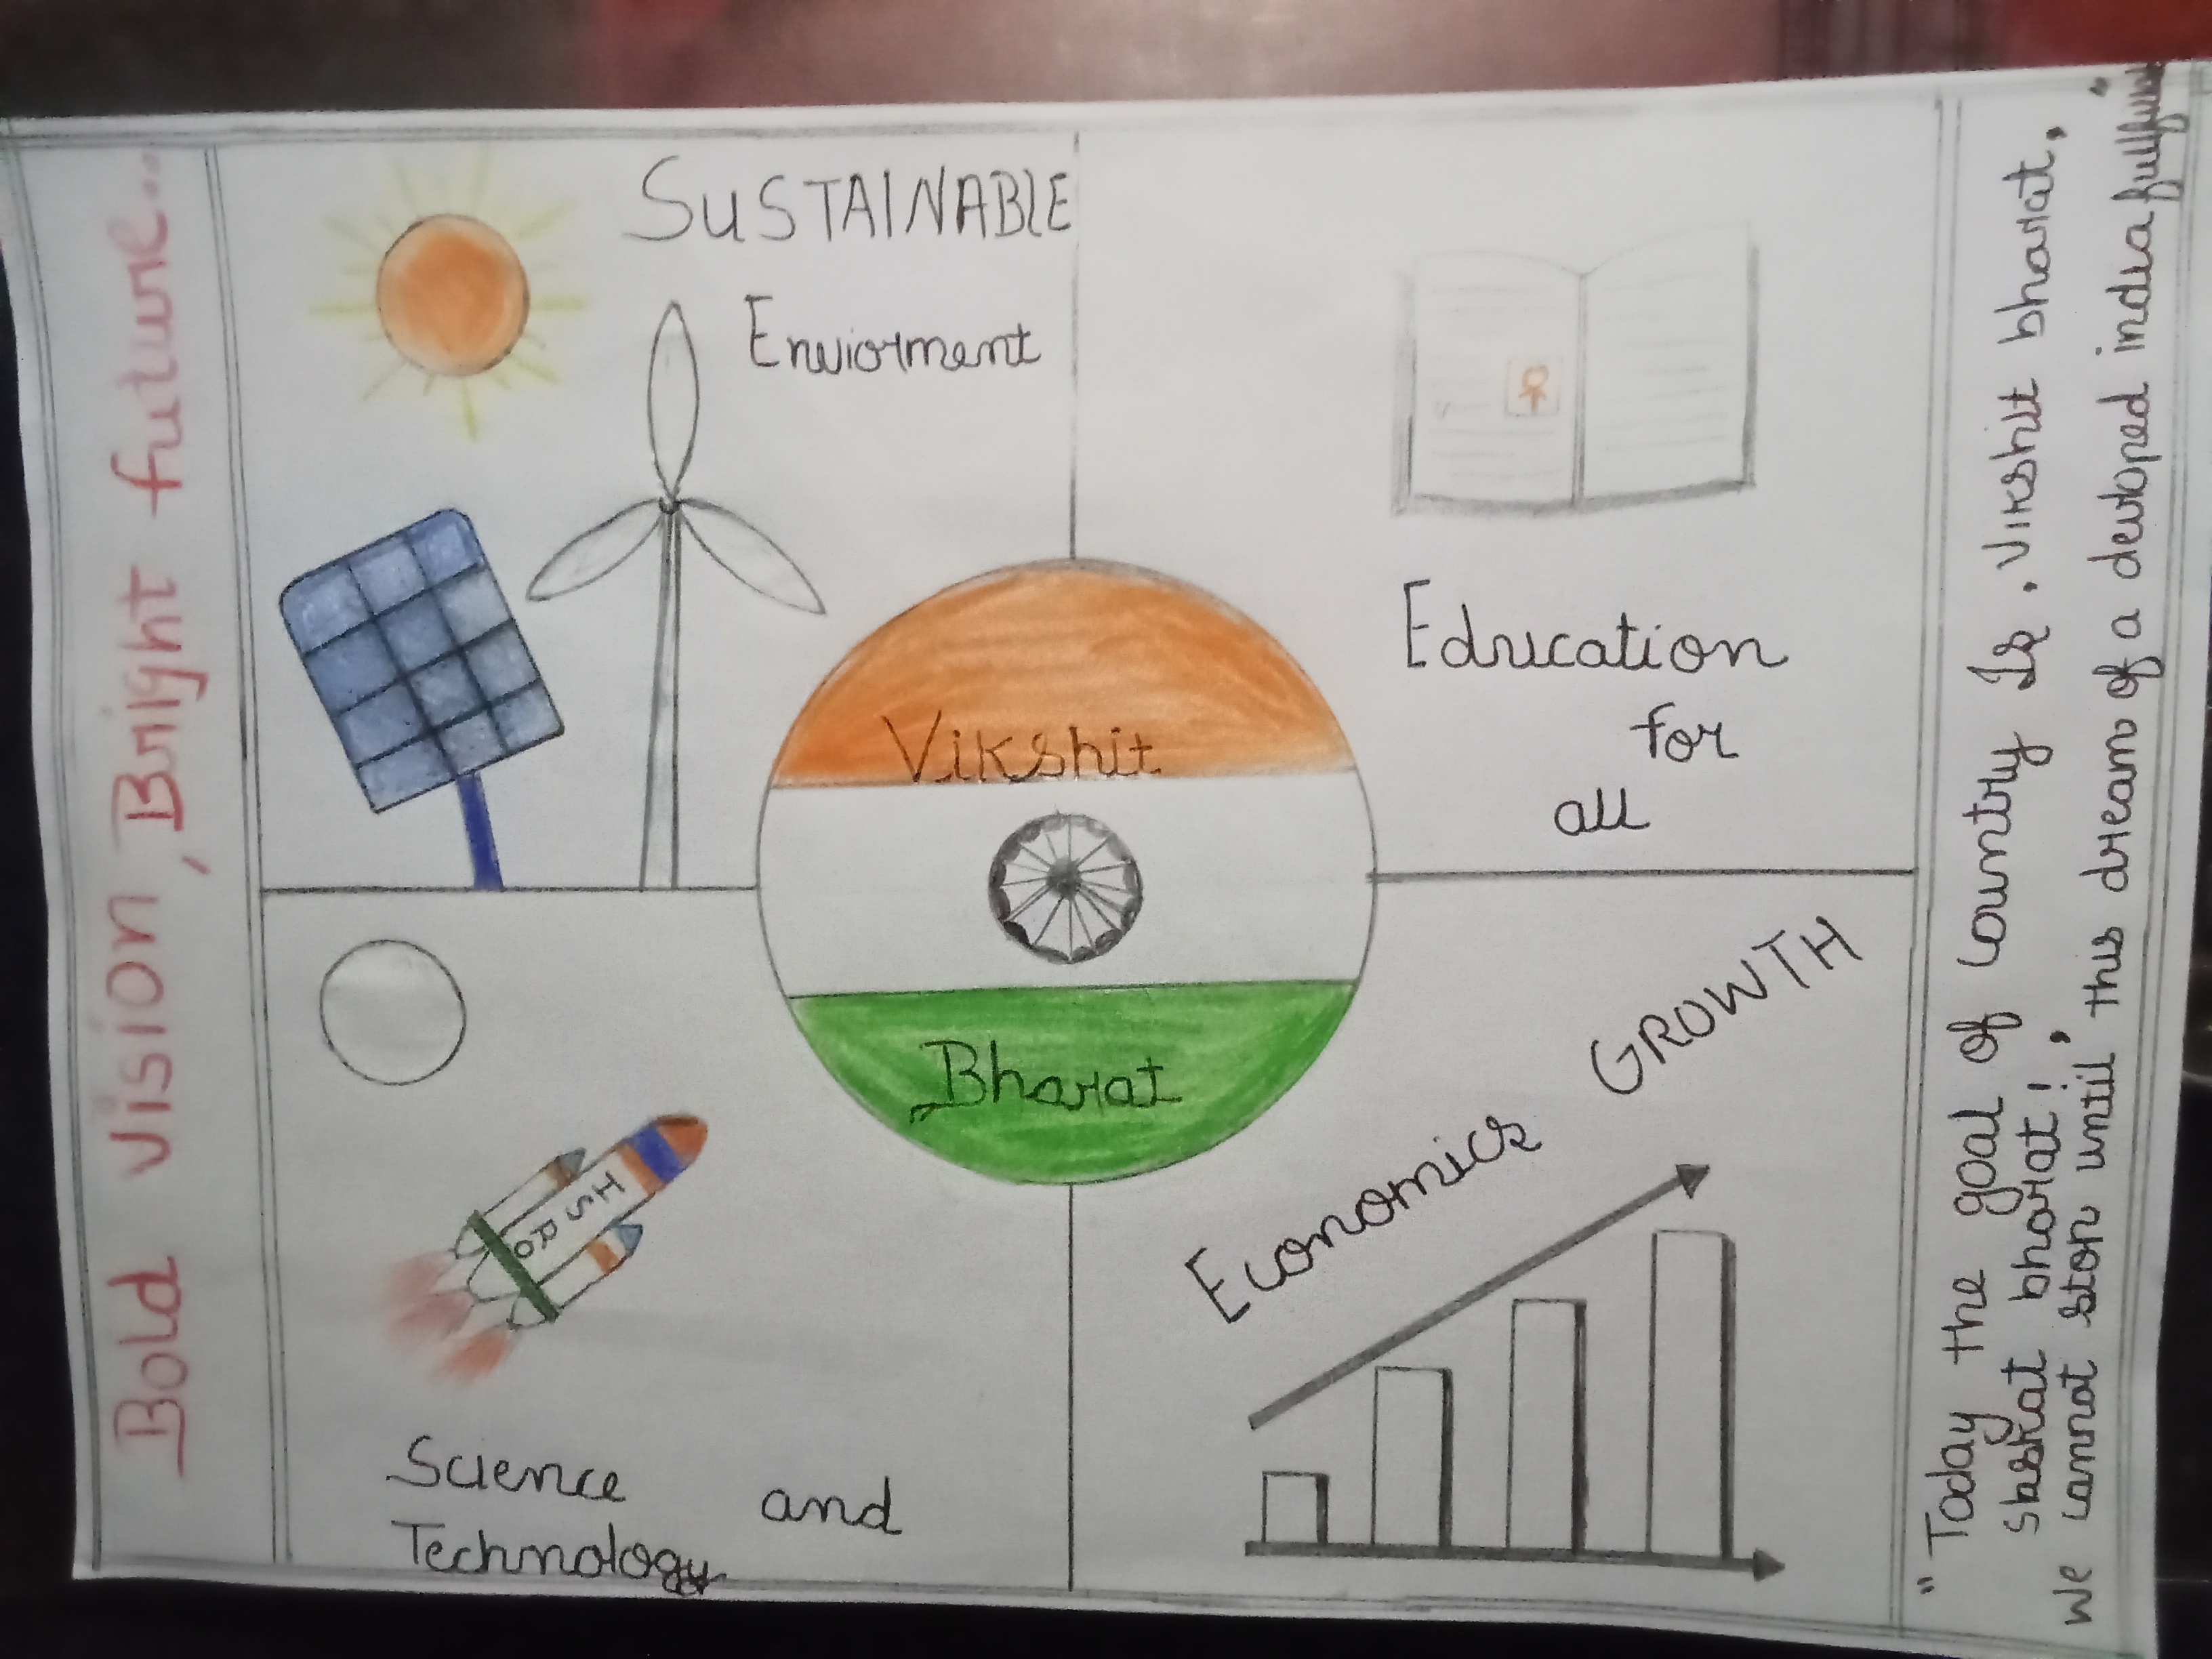 Bold vision, Bright future...
SUSTAINABLE
Enviorment
Education
for
all
Vikshit
Bharat
ISRO
Science and
Technology
Economics GROWTH
"Today the goal of country Is, Vikshit bharat,
shaskat bharat!
we cannot stop until, this dream of a devloped india